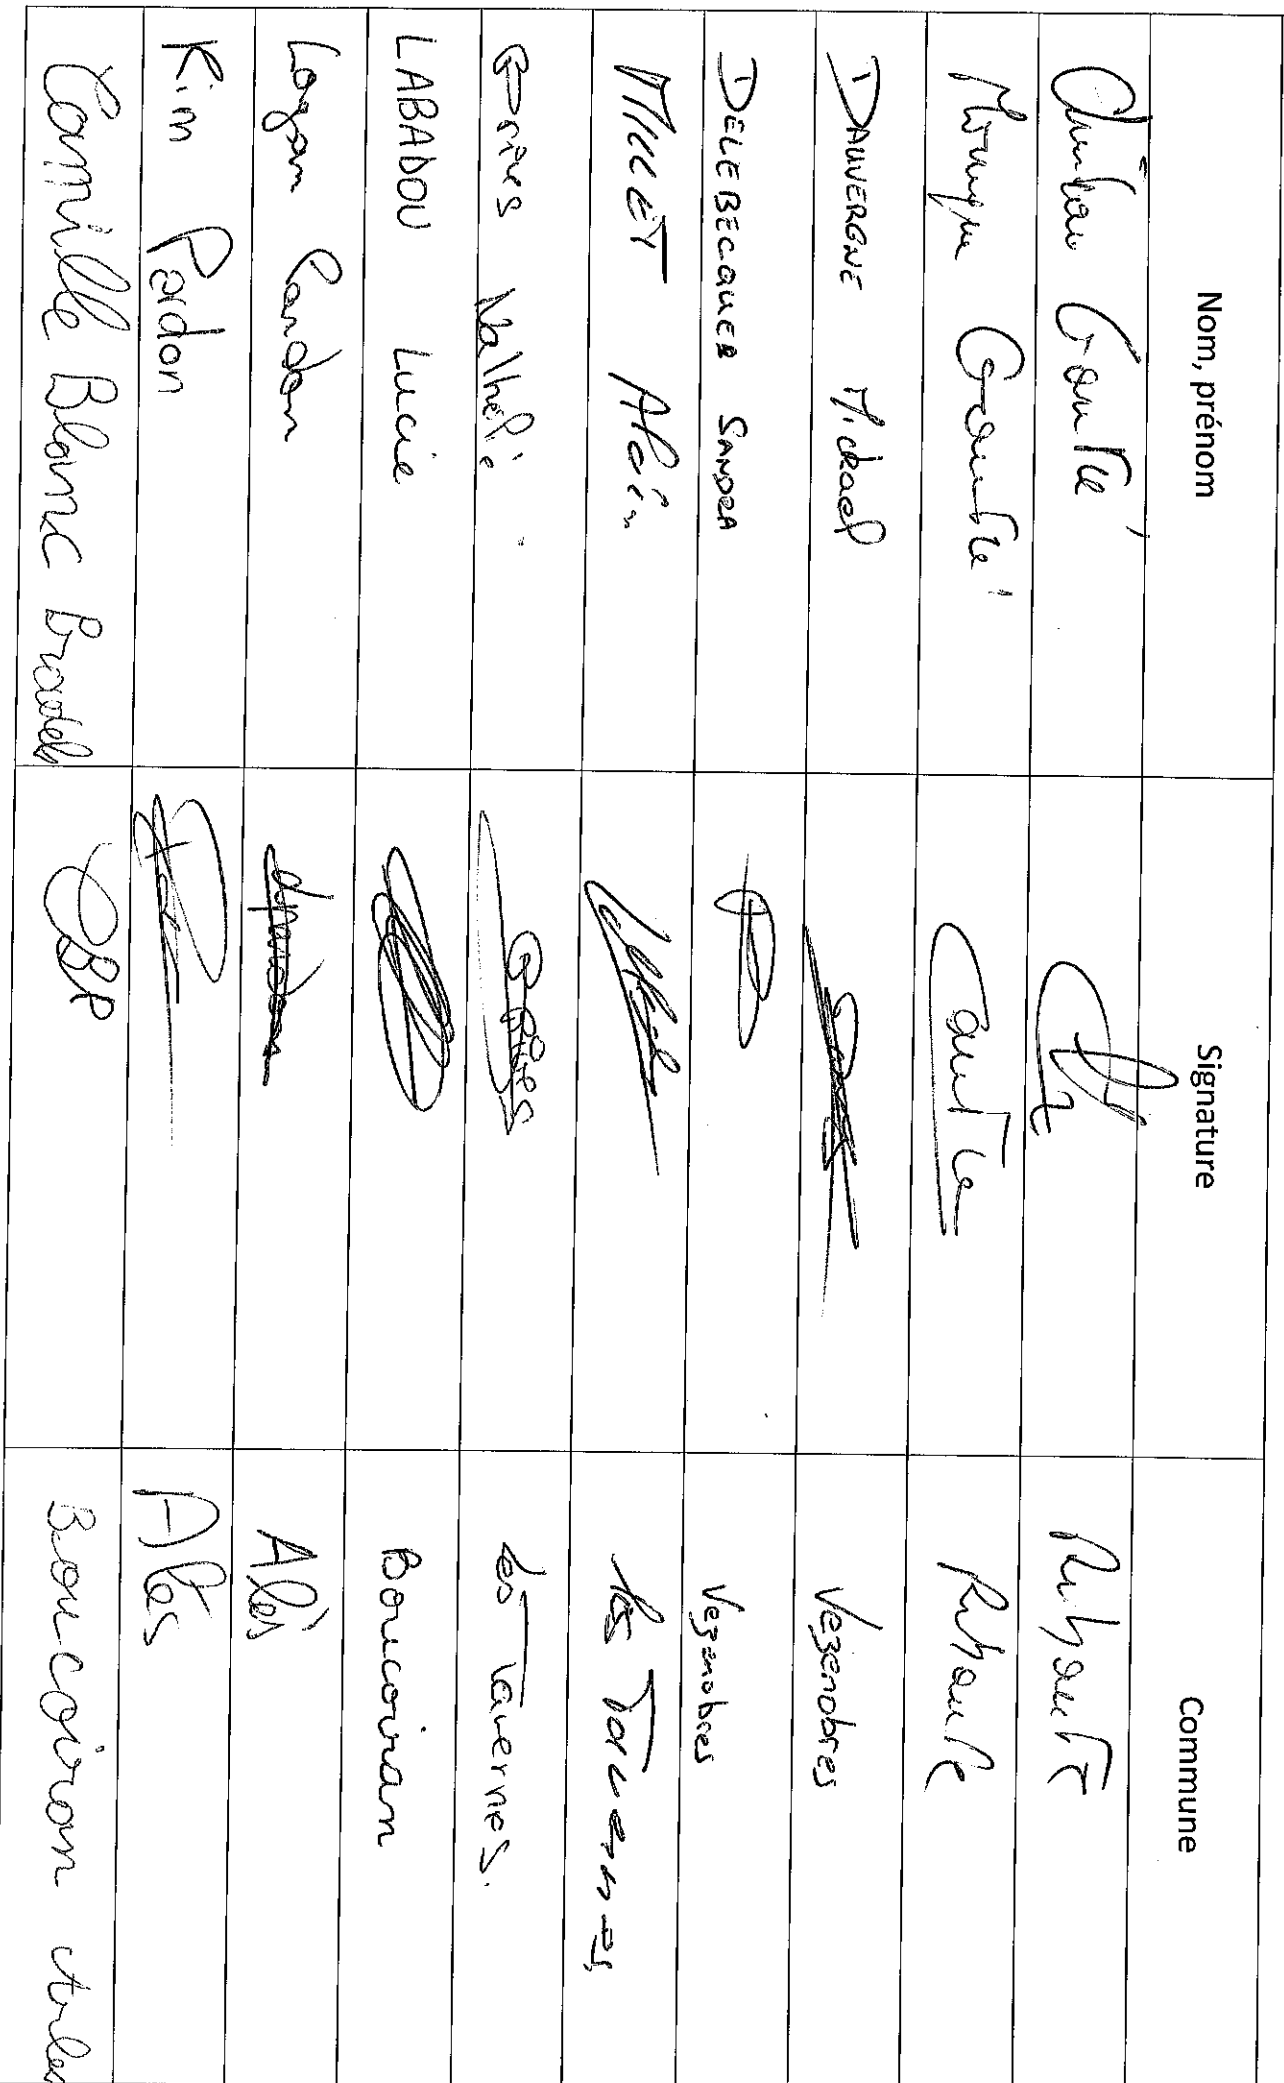 Nom, prénom Signature Commune
Gautié Ribaute
Monique Gautié Gautié Ribaute
DAUVERGNE Mickael Vezenobres
DELEBECQUER SANDRA Vezenobres
MILLET Alain les Tavernes
Grières Nathalie Grières les Tavernes.
LABADOU Lucie Boucoiran
Logan Pardon Alès
Kim Pardon Alès
Camille Blanc Bradel CBP Boucoiran